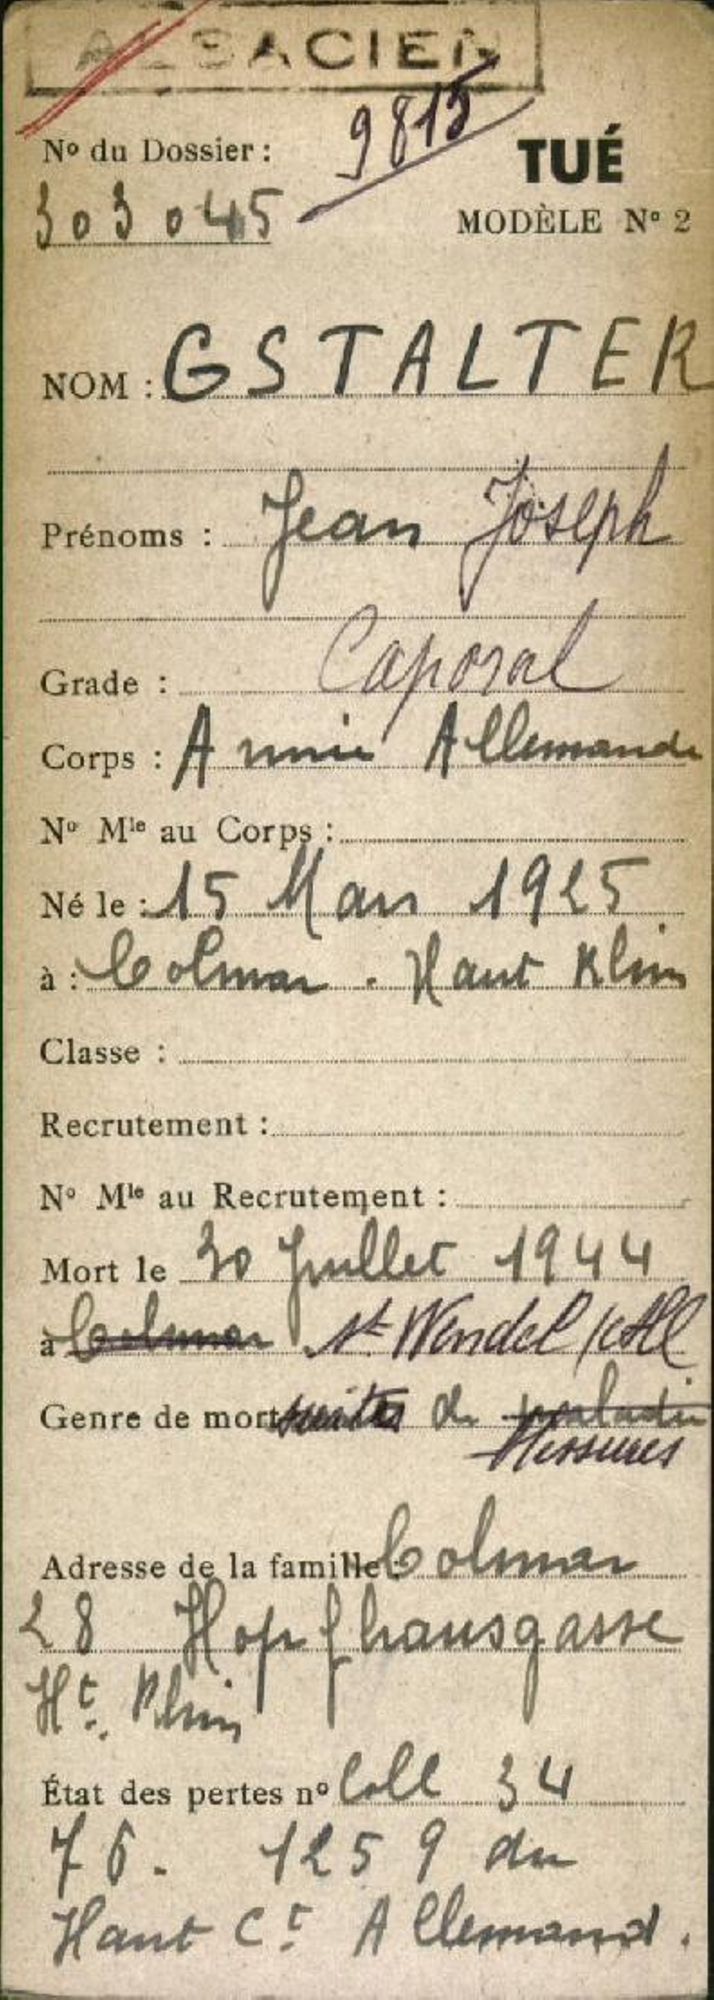 ALSACIEN
9815
N° du Dossier :
303045
TUÉ
MODÈLE N° 2
NOM : GSTALTER
Prénoms : Jean Joseph
Grade : Caporal
Corps : Armée Allemande
N° Mle au Corps :
Né le : 15 Mars 1925
à : Colmar . Haut Rhin
Classe :
Recrutement :
N° Mle au Recrutement :
Mort le 30 Juillet 1944
à Colmar St Wendel
Genre de mort suites de maladie
blessures
Adresse de la famille : Colmar
28 Hopfhausgasse
Ht. Rhin
État des pertes n° Coll 34
76. 1259 du
Haut Ct Allemand.